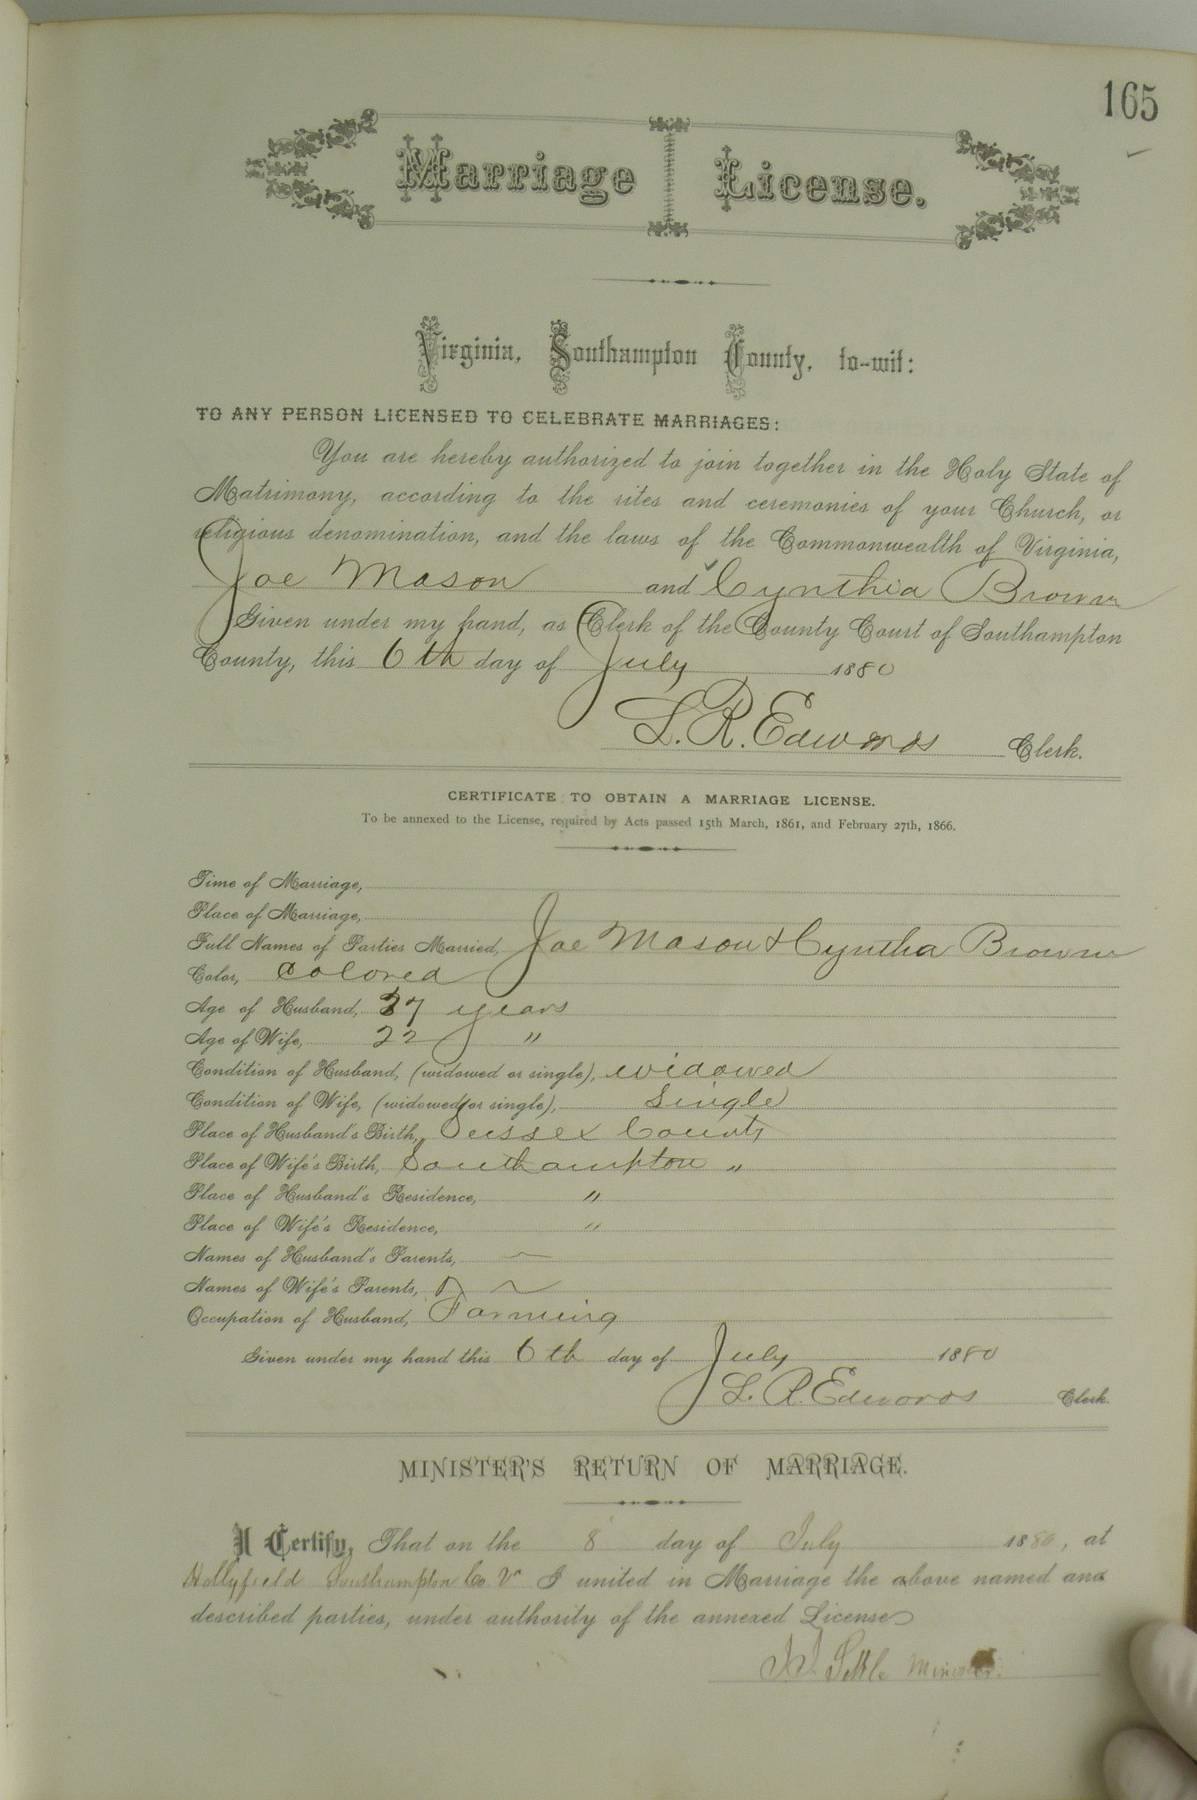 165
Marriage License.
Virginia, Southampton County, to-wit:
TO ANY PERSON LICENSED TO CELEBRATE MARRIAGES:
You are hereby authorized to join together in the Holy State of
Matrimony, according to the rites and ceremonies of your Church, or
religious denomination, and the laws of the Commonwealth of Virginia,
Joe Mason and Cynthia Brown
Given under my hand, as Clerk of the County Court of Southampton
County, this 6th day of July 1880
L. R. Edwards Clerk.
CERTIFICATE TO OBTAIN A MARRIAGE LICENSE.
To be annexed to the License, required by Acts passed 15th March, 1861, and February 27th, 1866.
Time of Marriage,
Place of Marriage,
Full Names of Parties Married, Joe Mason & Cyntha Brown
Color, Colored
Age of Husband, 37 years
Age of Wife, 22 "
Condition of Husband, (widowed or single), widowed
Condition of Wife, (widowed or single), Single
Place of Husband's Birth, Sussex County
Place of Wife's Birth, Southampton "
Place of Husband's Residence, "
Place of Wife's Residence, "
Names of Husband's Parents,
Names of Wife's Parents,
Occupation of Husband, Farming
Given under my hand this 6th day of July 1880
L. R. Edwards Clerk.
MINISTER'S RETURN OF MARRIAGE.
I Certify, That on the 8 day of July 1880, at
Hollyfield Southampton Co Va I united in Marriage the above named and
described parties, under authority of the annexed License
Minister.